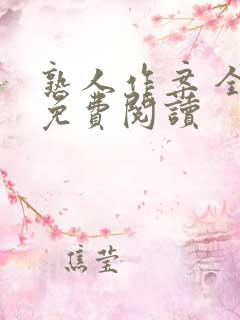 熟人作案全
免費閱讀
焦莹